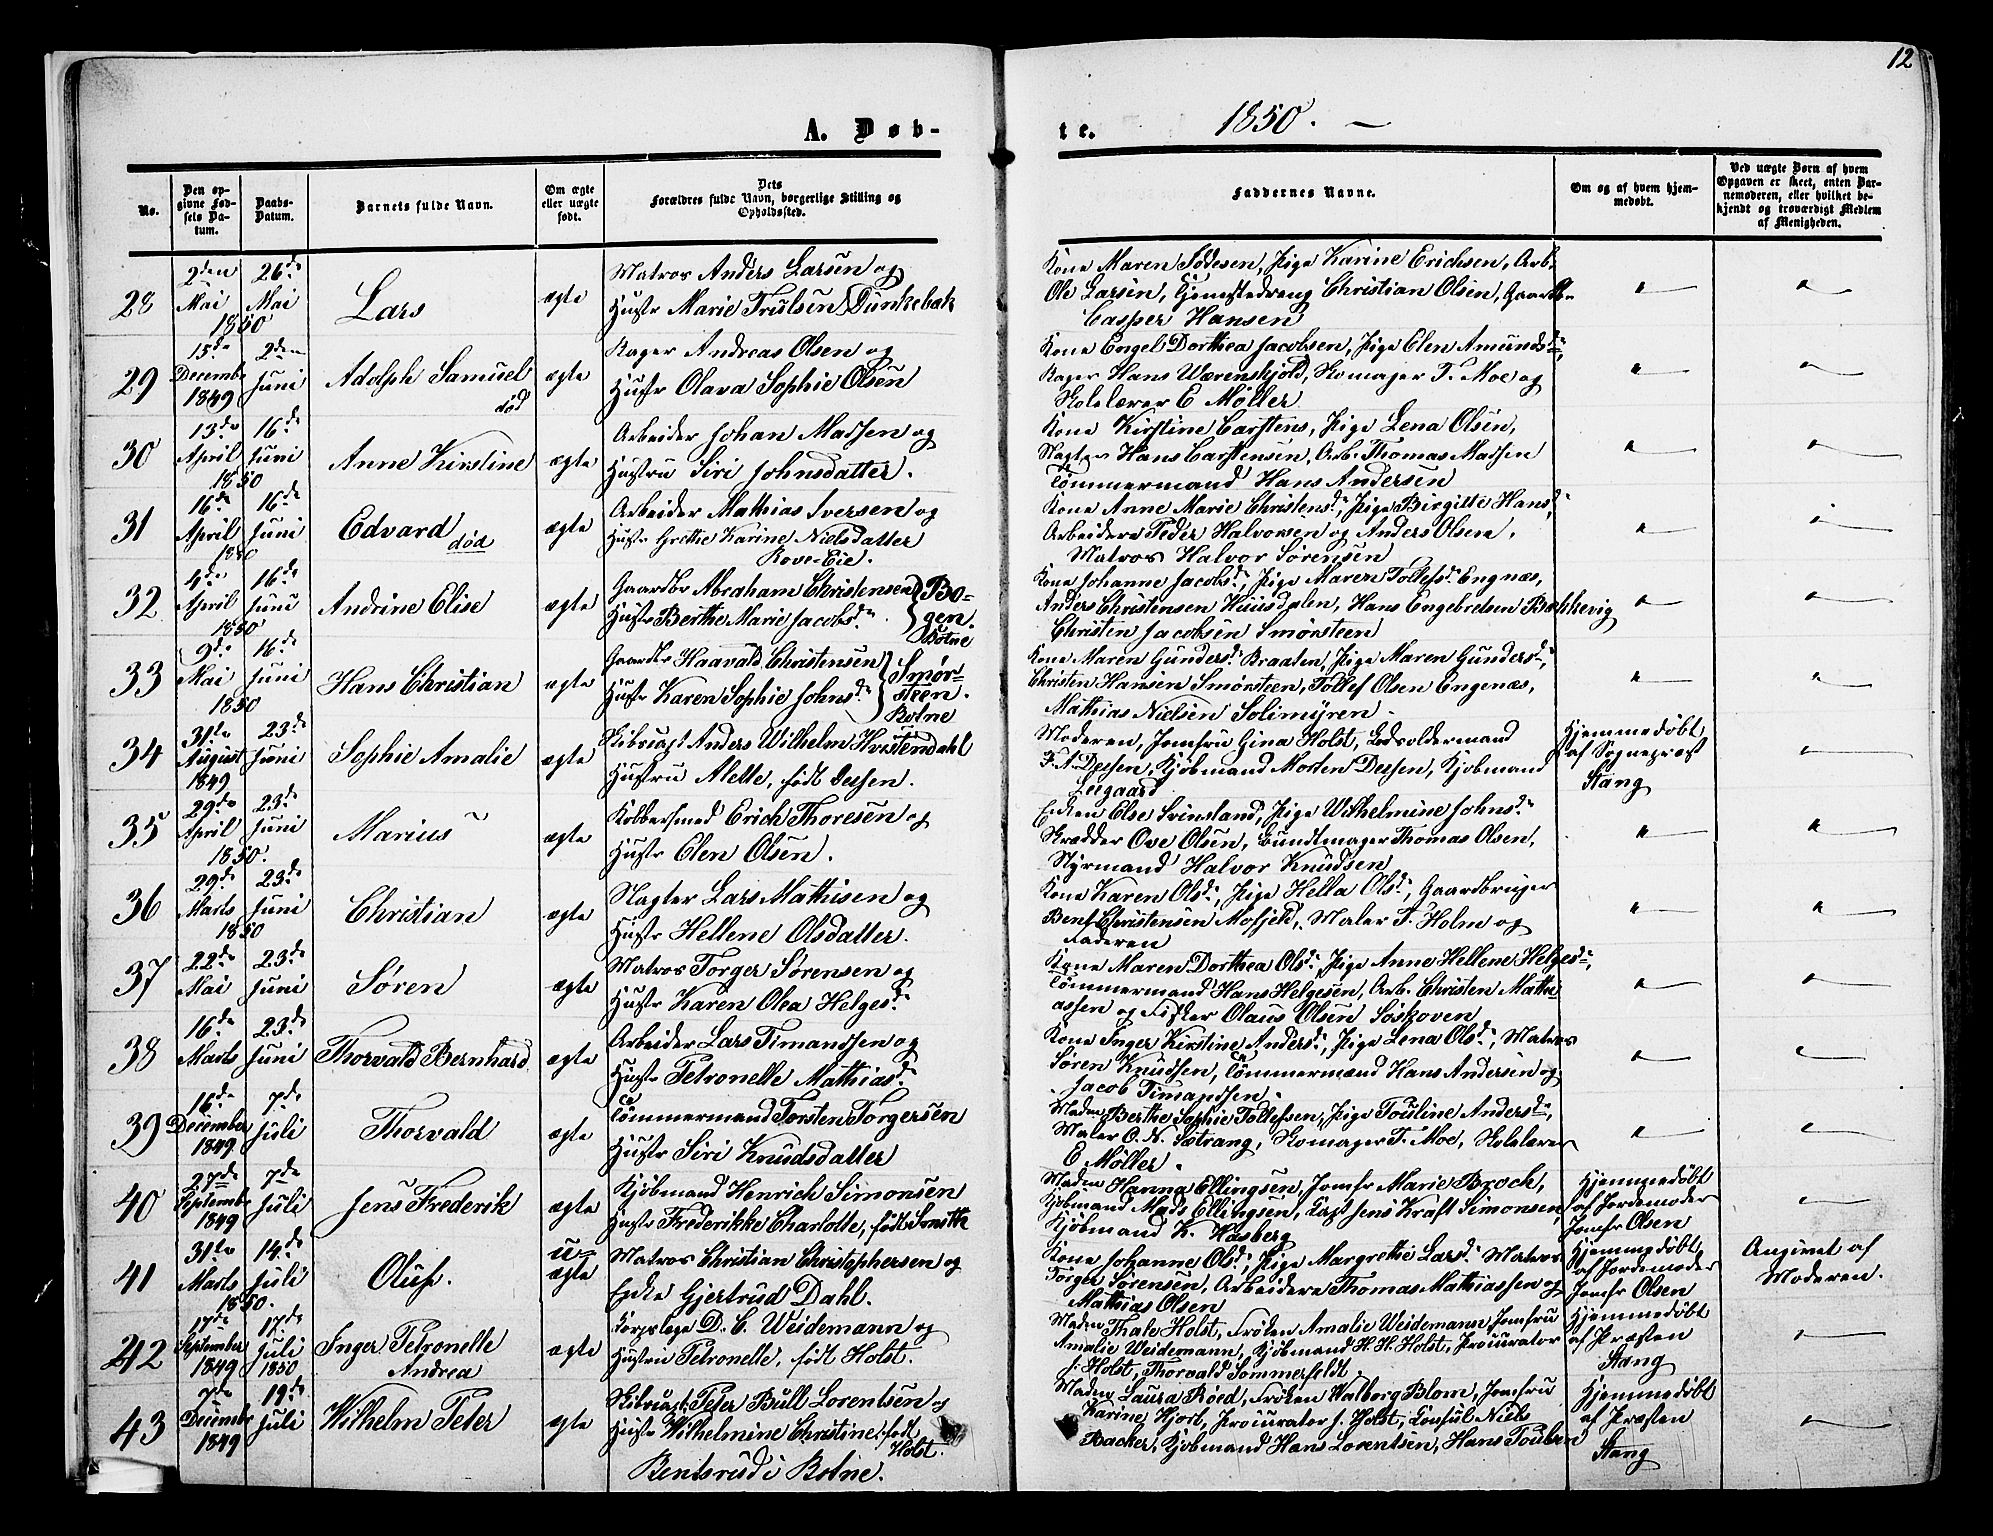 12
A. Døb-
te.
1850. –
No.
Den op-
givne Fød-
sels Da-
tum.
Daabs-
Datum.
Barnets fulde Navn.
Om ægte
eller uægte
født.
Dets
Forældres fulde Navn, borgerlige Stilling og
Opholdssted.
Faddernes Navne.
Om og af hvem hjem-
medøbt.
Ved uægte Børn af hvem
Opgaven er skeet, enten Bar-
nemoderen, eller hvilket be-
kjendt og troværdigt Medlem
af Menigheden.
28
2den
Mai
1850
26de
Mai
Lars
ægte
Matros Anders Larsen og
Hustr Marie Trulsen Dunkebæk
Kone Maren Sødesen, Pige Karine Erichsen, Arb.
Ole Larsen, Christian Olsen,
Casper Hansen
29
15de
Decembr
1849
2den
Juni
Adolph Samuel
død
ægte
Bager Andreas Olsen og
Hustr Olava Sophie Olsen
Kone Engel Dorthea Jacobsen, Pige Elen Amundsdr,
Bager Hans Wærenskjold, Skomager T. Moe og
Skolelærer E Møller
30
13de
April
1850
16de
Juni
Anne Kirstine
ægte
Arbeider Johan Madsen og
Hustru Siri Johnsdatter.
Kone Kirstine Carstens, Pige Lena Olsen,
Slagter Hans Carstensen, Arb. Thomas Madsen
Tømmermand Hans Andersen
31
16de
April
1850
16de
Juni
Edvard
død
ægte
Arbeider Mathias Iversen og
Hustr Grethe Karine Nielsdatter
Rove-Eie.
Kone Anne Marie Christensd., Pige Birgitte Hansd.,
Arbeidere Peder Halvorsen og Anders Olsen,
Matros Halvor Sørensen
32
4de
April
1850
16de
Juni
Andrine Elise
ægte
Gaardbr Abraham Christensen
Hustr Berthe Marie Jacobsd.
Bo-
gen.
Botne
Kone Johanne Jacobsd., Pige Maren Tollefsd. Engnæs,
Anders Christensen Huusdalen, Hans Engebretsen Bækkevig
Christen Jacobsen Smørsteen
33
9de
Mai
1850
16de
Juni
Hans Christian
ægte
Gaardbr Haavald Christensen
Hustr Karen Sophie Johnsd.
Smør-
steen.
Botne
Kone Maren Gundersd. Braaten, Pige Maren Gundersd.,
Christen Hansen Smørsteen, Tollef Olsen Engenæs,
Mathias Nielsen Solimyren.
34
31te
August
1849
23de
Juni
Sophie Amalie
ægte
Skibscapt Anders Wilhelm Hvistendahl
Hustru Alette, født Deesen.
Moderen, Jomfru Gina Holst, Lodsoldermand
F. A. Deesen, Kjøbmand Morten Deesen, Kjøbmand
Leegaard
Hjemmedøbt
af Sognepræst
Stang
35
29de
April
1850.
23de
Juni
Marius
ægte
Kobbersmed Erich Thoresen og
Hustr Elen Olsen.
Enken Else Svinsland, Pige Wilhelmine Johnsd.
Skrædder Ove Olsen, Bundtmager Thomas Olsen,
Styrmand Halvor Knudsen
36
29de
Marts
1850
23de
Juni
Christian
ægte
Slagter Lars Mathisen og
Hustr Hellene Olsdatter.
Kone Karen Olsd., Pige Hella Olsd., Gaardbruger
Bent Christensen Mofjeld, Maler F. Holm og
Faderen
37
22de
Mai
23de
Juni
Søren
ægte
Matros Torger Sørensen og
Hustr Karen Olea Helgesd.
Kone Maren Dorthea Olsd., Pige Anne Hellene Helgesd.,
Tømmermand Hans Helgesen, Arb. Christen Mathi
assen og Fisker Olaus Olsen Søskoven
38
16de
Marts
23de
Juni
Thorvald Bernhard
ægte
Arbeider Lars Timandsen og
Hustr Petronelle Mathiasd.
Kone Inger Kirstine Andersd., Pige Lena Olsd., Matros
Søren Knudsen, Tømmermænd Hans Andersen og
Jacob Timandsen.
39
16de
December
1849
7de
Juli
Thorvald
ægte
Tømmermand Torsten Torgersen
Hustr Siri Knudsdatter
Madm Berthe Sophie Tollefsen, Pige Pouline Andersd.,
Maler O. N. Sætrang, Skomager T. Moe, Skolelærer
E Møller.
40
27de
Septembr
1849
7de
Juli
Jens Frederik
ægte
Kjøbmand Henrich Simonsen
Hustr Frederikke Charlotte, født Smith
Madm Hanna Ellingsen, Jomfr Marie Broch,
Kjøbmand Mads Ellingsen, Capt Jens Kraft Simonsen,
Kjøbmand K. Hasberg
Hjemmedøbt
af Jordemoder
Jomfr Olsen
41
31te
Marts
1850.
14de
Juli
Oluf.
u-
ægte
Matros Christian Christophersen og
Enke Gjertrud Dahl.
Kone Johanne Olsd., Pige Margrethe Larsd. Matros
Torger Sørensen, Arbeidere Thomas Mathiassen og
Mathias Olsen
Hjemmedøbt
af Jordemoder
Jomfr Olsen
Angivet af
Moderen.
42
17de
September
1849
17de
Juli
1850
Inger Petronelle
Andrea
ægte
Korpslæge D. C. Weidemann og
Hustru Petronelle, født Holst.
Madm Thale Holst, Frøken Amalie Weidemann, Jomfru
Amalie Weidemann, Kjøbmand H. H. Holst, Procurator
J. Holst, Thorvald Sommerfeldt
Hjemmedøbt
af Præsten
Stang
43
7de
Decembr
1849
19de
Juli
Wilhelm Peter
ægte
Skibscapt. Peter Bull Lorentsen og
Hustr Wilhelmine Christine, født
Holst.
Bentsrud i Botne.
Madm Laura Røed, Frøken Walborg Blom, Jomfru
Karine Hjort, Procurator J. Holst, Consul Niels
Backer, Kjøbmand Hans Lorentsen, Hans Poulsen
Hjemmedøbt
af Præsten
Stang